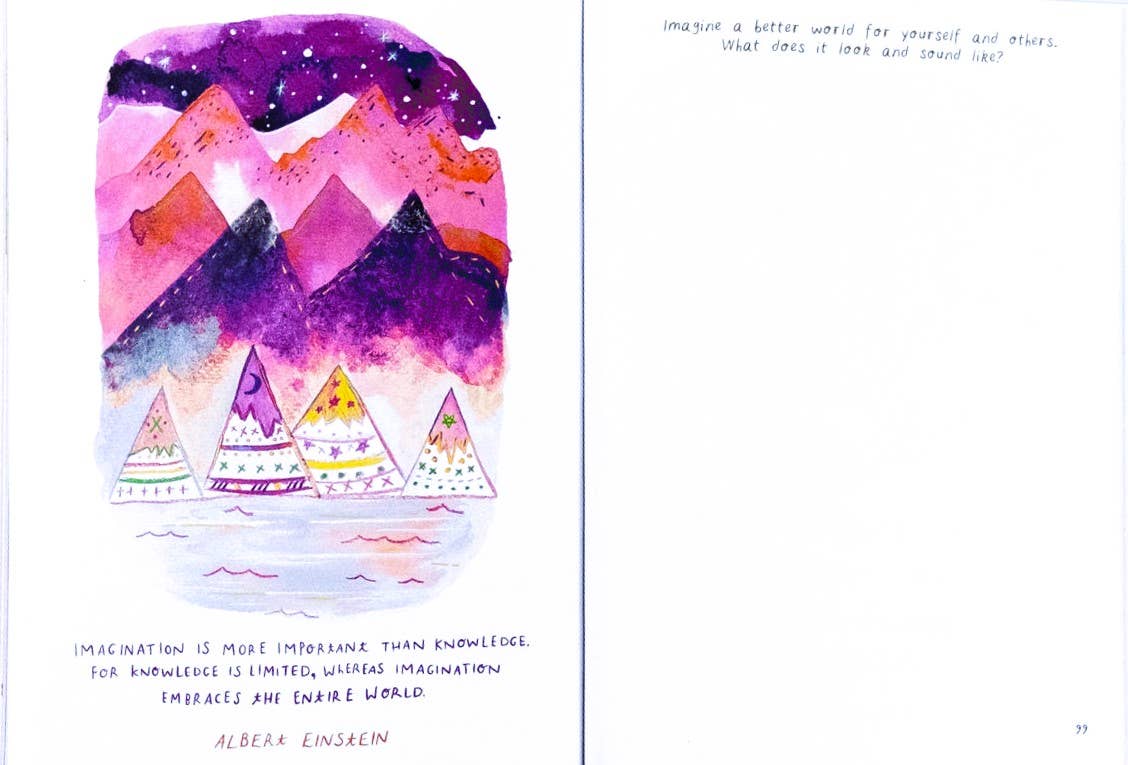 IMAGINATION IS MORE IMPORTANT THAN KNOWLEDGE.
FOR KNOWLEDGE IS LIMITED, WHEREAS IMAGINATION
EMBRACES THE ENTIRE WORLD.
ALBERT EINSTEIN
Imagine a better world for yourself and others.
What does it look and sound like?
99